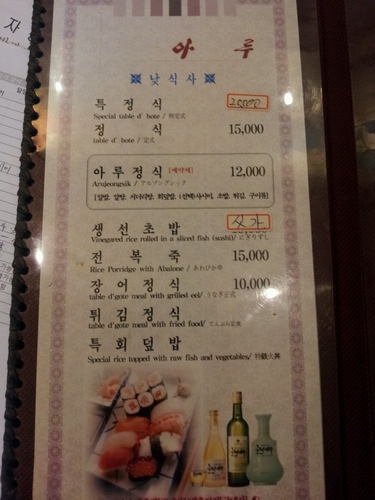 아 루
낮식사
특 정 식 20,000
Special table d' hote / 特定式
정 식 15,000
table d' hote / 定式
아루정식 [예약제] 12,000
Arujeongsik / アルゾングシック
생 선 초 밥 싯가
Vinegared rice rolled in a sliced fish (sushi)/ にぎりずし
전 복 죽 15,000
Rice Porridge with Abalone / あわびかゆ
장 어 정 식 10,000
table d'gote meal with grilled eel/ うなぎ正式
튀 김 정 식
table d'gote meal with fried food/ てんぷら定食
특 회 덮 밥
Special rice topped with raw fish and vegetables/ 特鉄火丼